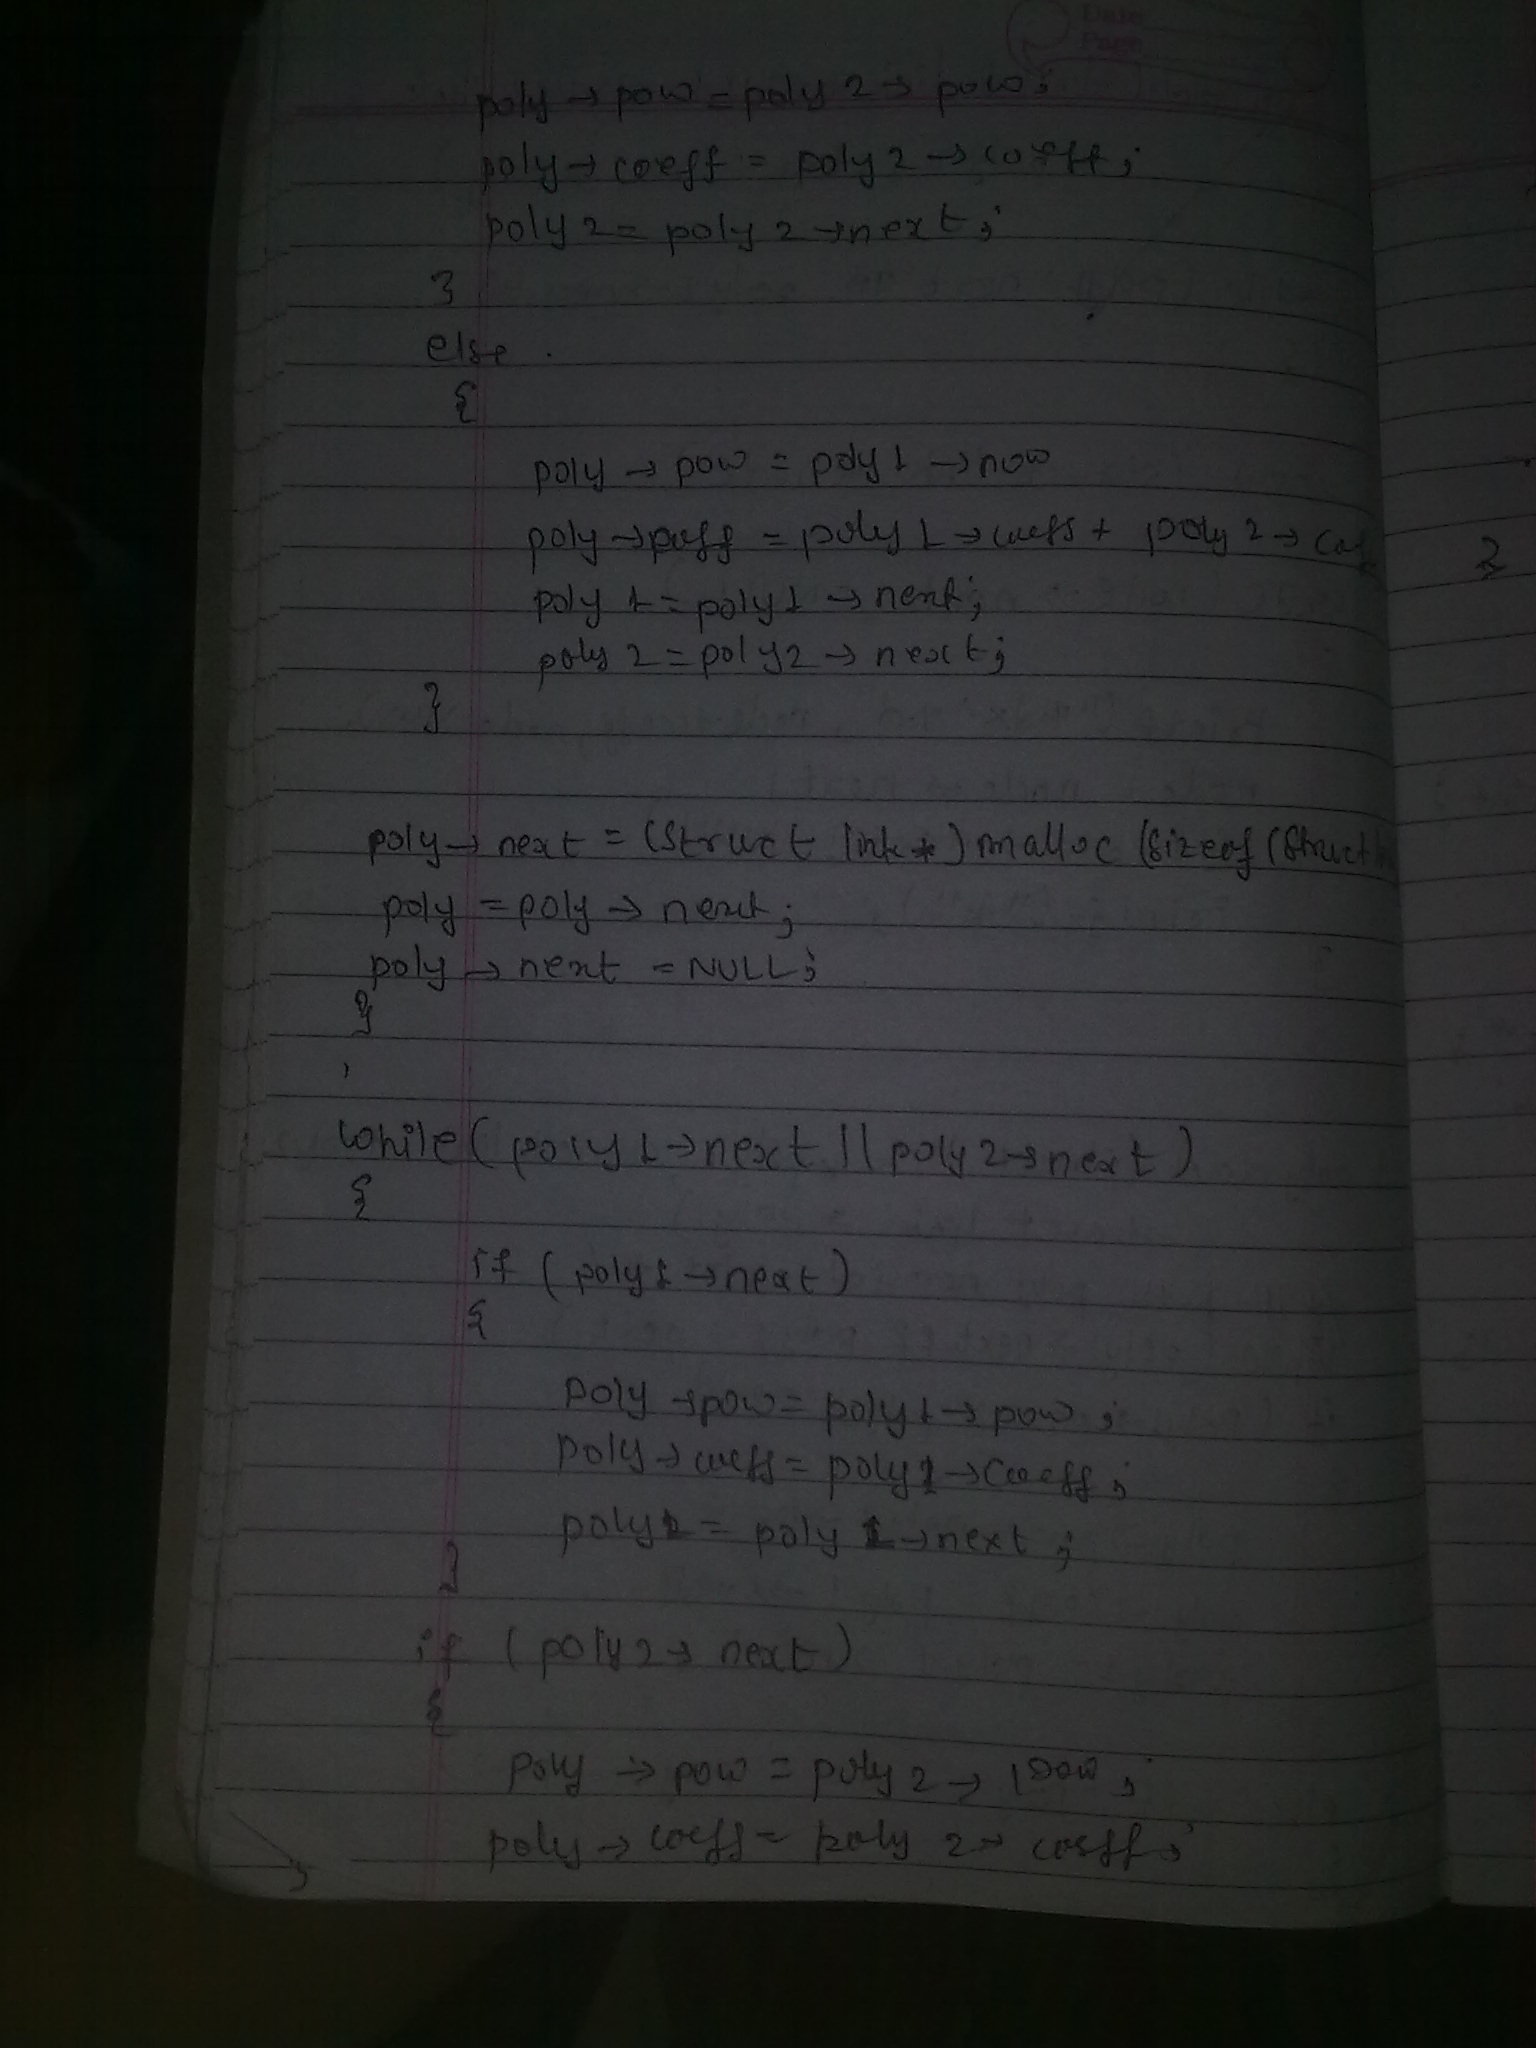 Date
Page
poly → pow = poly 2 → pow;
poly → coeff = poly 2 → coeff;
poly 2 = poly 2 → next;
}
else
{
poly → pow = poly 1 → now
poly → poff = poly 1 → coeff + poly 2 → coef
poly 1 = poly 1 → next;
poly 2 = poly 2 → next;
}
poly → next = (struct link *) malloc (sizeof (struct
poly = poly → next;
poly → next = NULL;
}
while ( poly 1 → next || poly 2 → next )
{
if ( poly 1 → next )
{
poly → pow = poly 1 → pow ;
poly → coeff = poly 1 → coeff ;
poly 1 = poly 1 → next ;
}
if ( poly 2 → next )
{
poly → pow = poly 2 → pow ;
poly → coeff = poly 2 → coeff ;
}